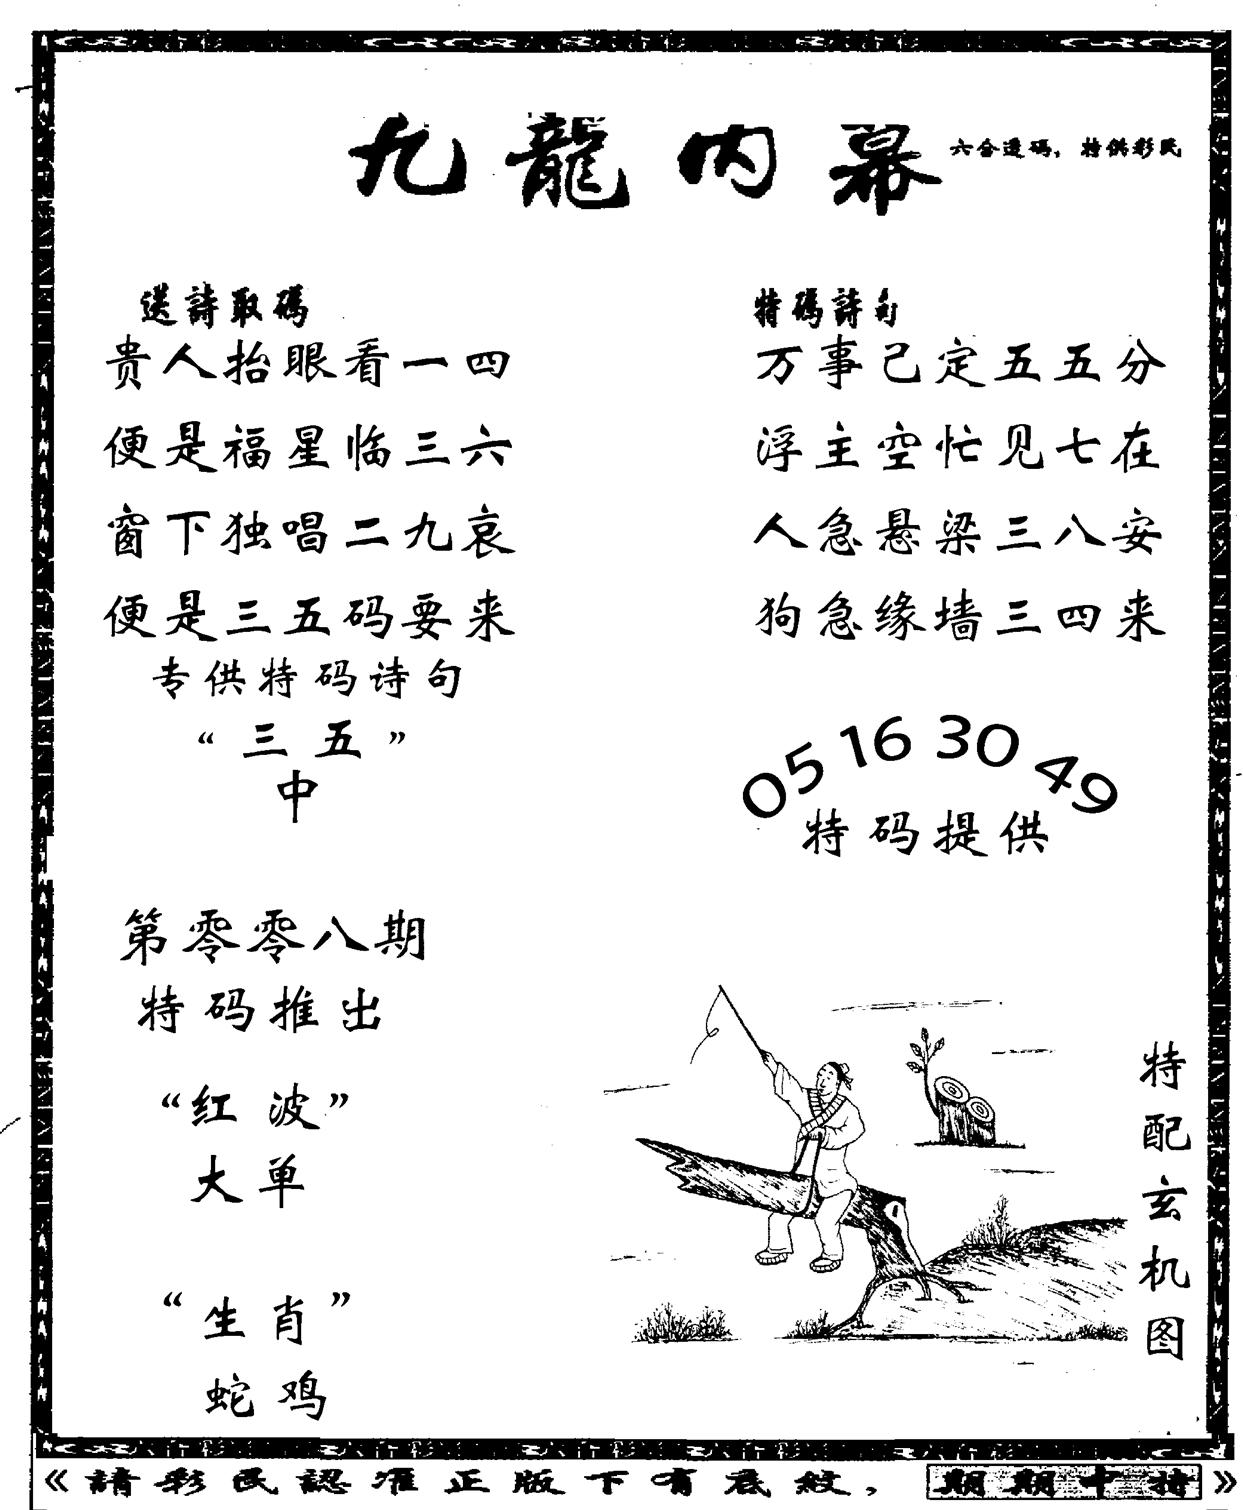 九龍内幕
六合透码，特供彩民
送詩取碼
贵人抬眼看一四
便是福星临三六
窗下独唱二九哀
便是三五码要来
专供特码诗句
“三五”
中
特碼詩句
万事己定五五分
浮主空忙见七在
人急悬梁三八安
狗急缘墙三四来
05 16 30 49
特码提供
第零零八期
特码推出
“红波”
大单
“生肖”
蛇鸡
特配玄机图
《請彩民認准正版下有底紋，期期中特》